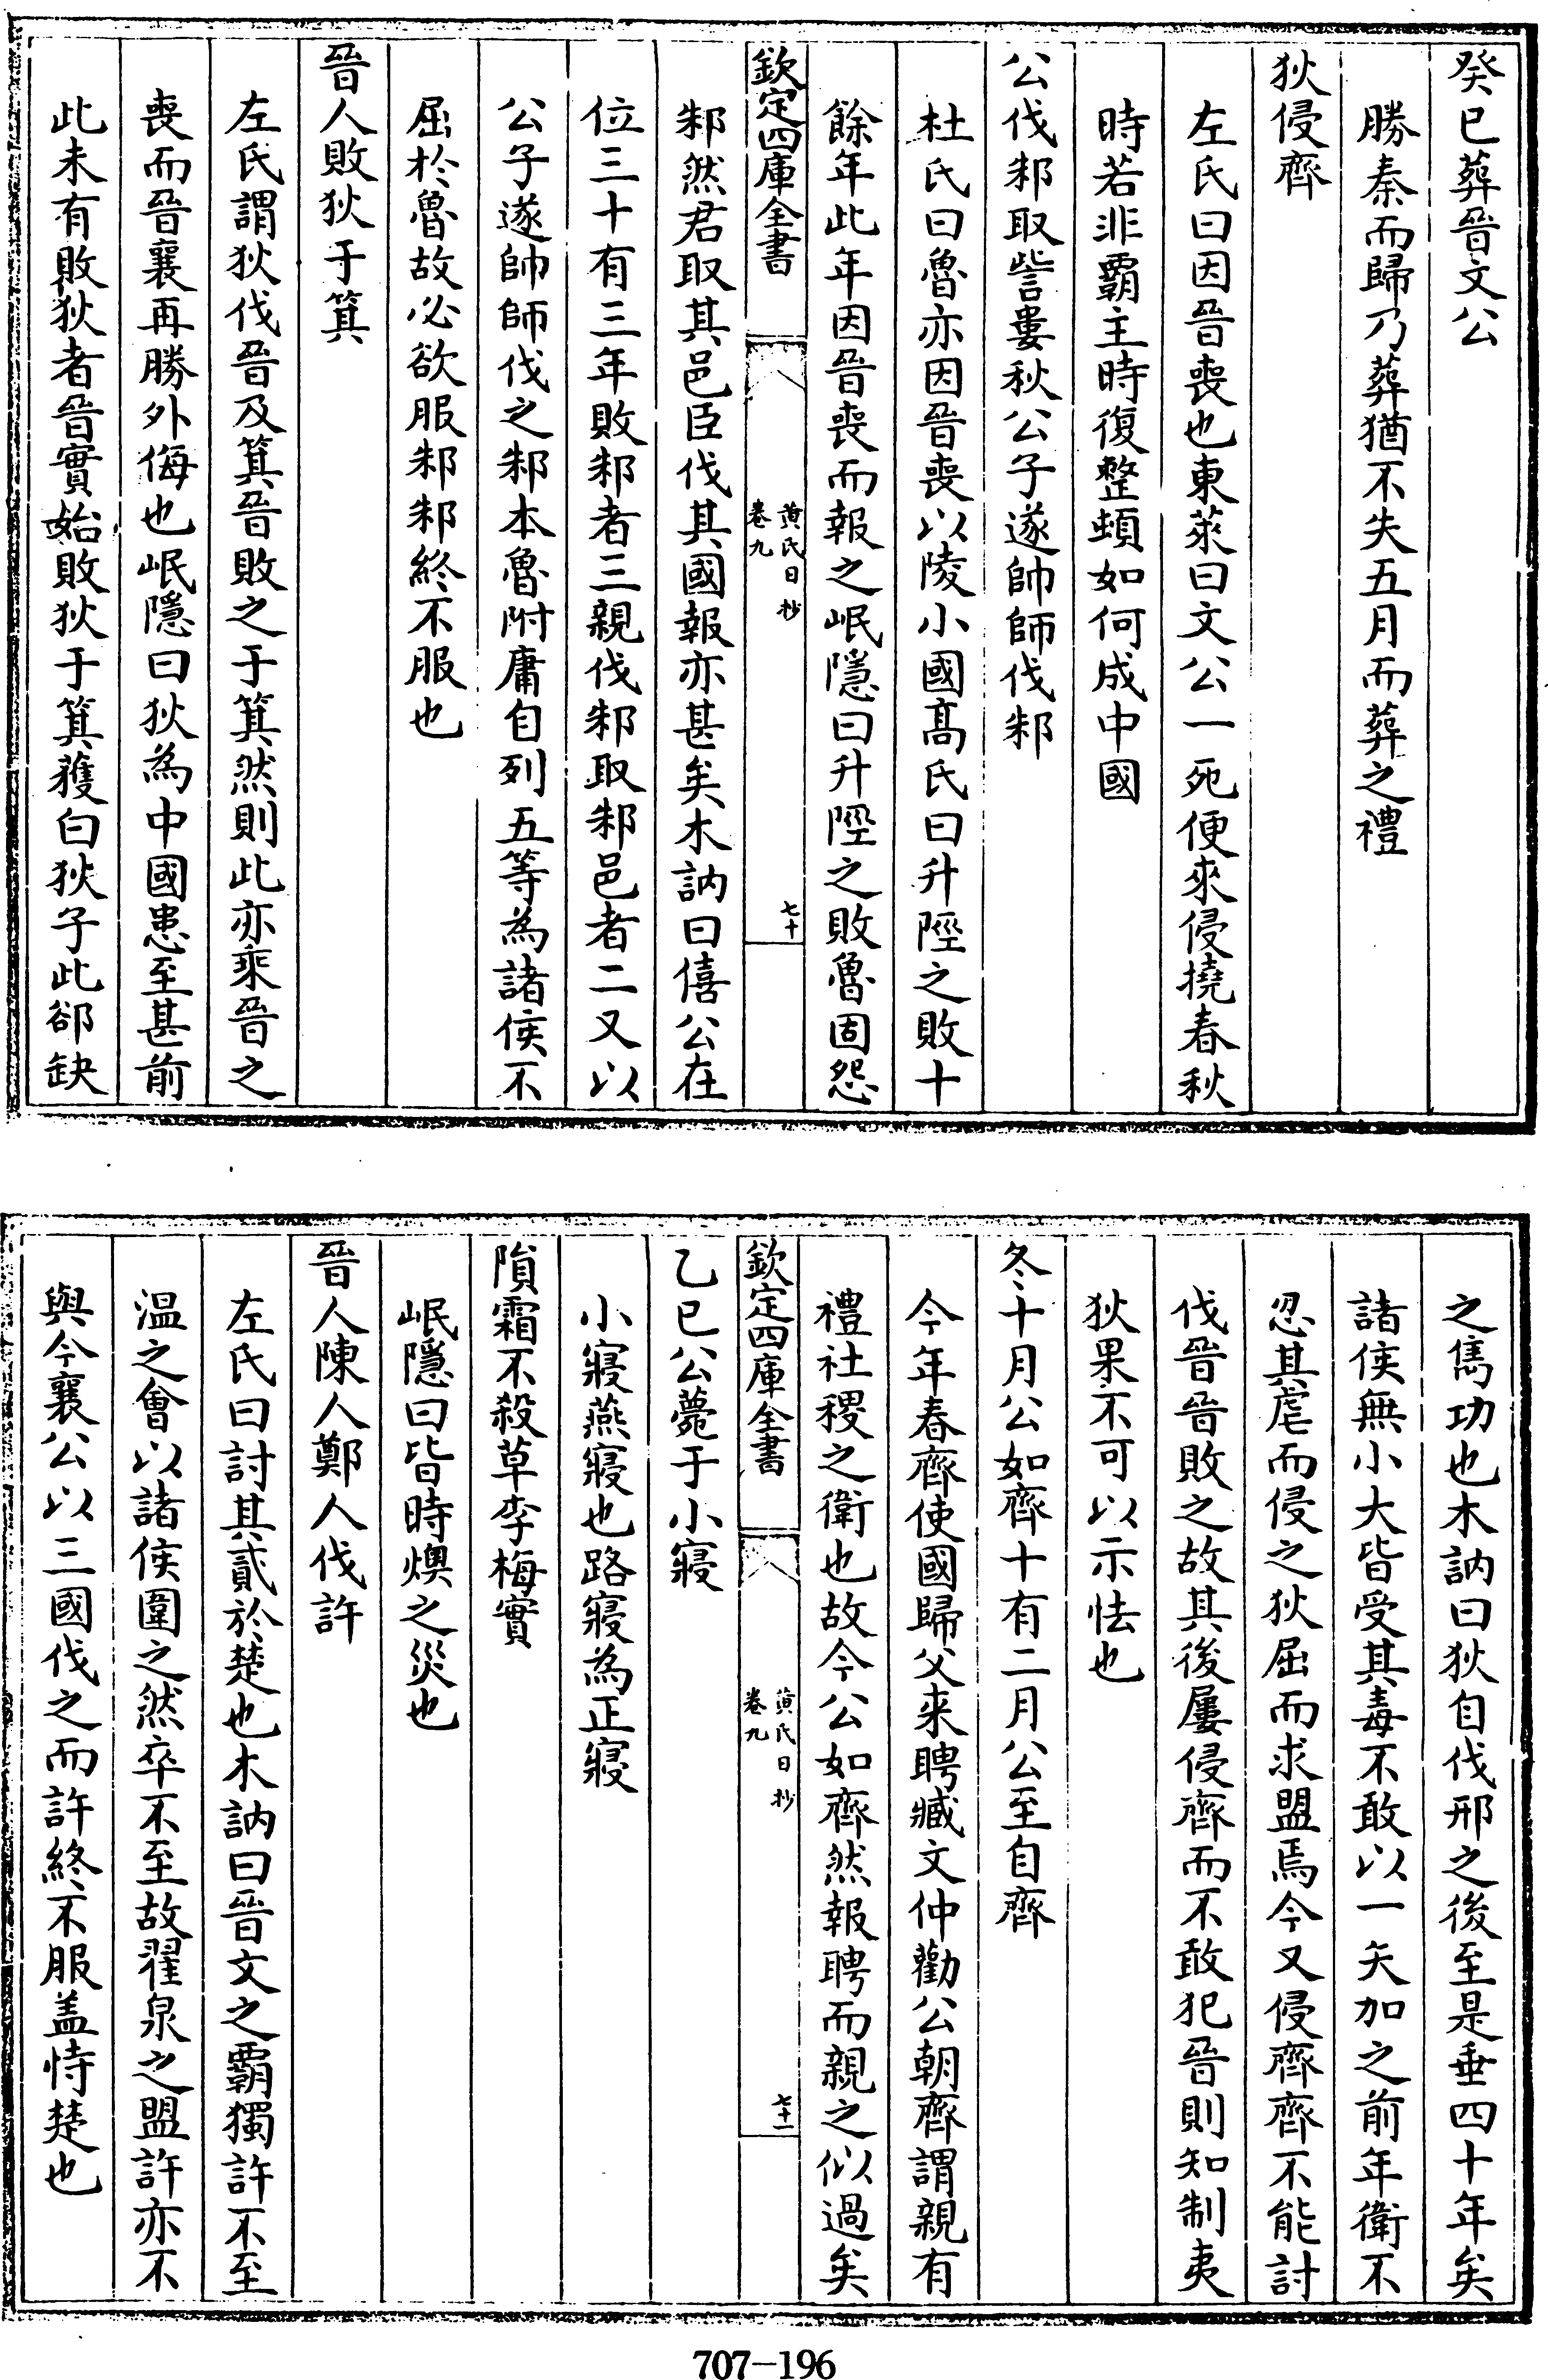 癸巳葬晉文公
勝秦而歸乃葬猶不失五月而葬之禮
狄侵齊
左氏曰因晉喪也東萊曰文公一死便來侵撓春秋
時若非霸主時復整頓如何成中國
公伐邾取訾婁秋公子遂帥師伐邾
杜氏曰魯亦因晉喪以陵小國髙氏曰升陘之敗十
餘年此年因晉喪而報之岷隱曰升陘之敗魯固怨
欽定四庫全書
黄氏日抄
卷九
七十
邾然君取其邑臣伐其國報亦甚矣木訥曰僖公在
位三十有三年敗邾者三親伐邾取邾邑者二又以
公子遂帥師伐之邾本魯附庸自列五等為諸侯不
屈於魯故必欲服邾邾終不服也
晉人敗狄于箕
左氏謂狄伐晉及箕晉敗之于箕然則此亦乘晉之
喪而晉襄再勝外侮也岷隱曰狄為中國患至甚前
此未有敗狄者晉實始敗狄于箕蒦白狄子此郤缺
之雋功也木訥曰狄自伐邢之後至是垂四十年矣
諸侯無小大皆受其毒不敢以一矢加之前年衛不
忍其虐而侵之狄屈而求盟焉今又侵齊齊不能討
伐晉晉敗之故其後屢侵齊而不敢犯晉則知制夷
狄果不可以示怯也
冬十月公如齊十有二月公至自齊
今年春齊使國歸父来聘臧文仲勸公朝齊謂親有
禮社稷之衛也故今公如齊然報聘而親之似過矣
欽定四庫全書
黄氏日抄
卷九
七十一
乙巳公薨于小寢
小寢燕寢也路寢為正寢
隕霜不殺草李梅實
岷隱曰皆時燠之災也
晉人陳人鄭人伐許
左氏曰討其貳於楚也木訥曰晉文之霸獨許不至
温之會以諸侯圍之然卒不至故翟泉之盟許亦不
與今襄公以三國伐之而許終不服盖恃楚也
707-196